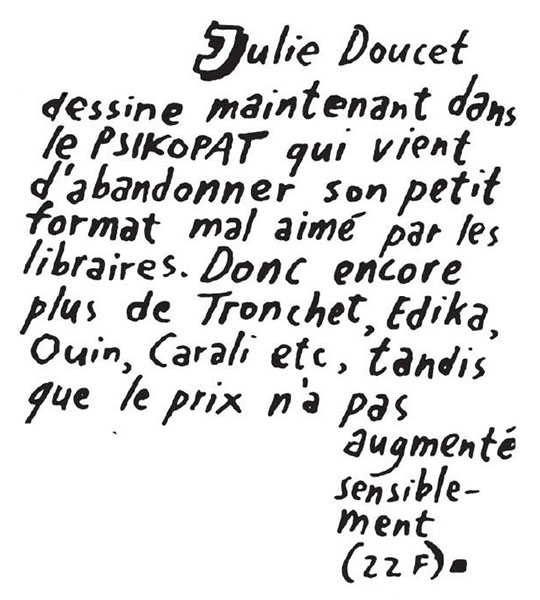 Julie Doucet
dessine maintenant dans
le PSIKOPAT qui vient
d'abandonner son petit
format mal aimé par les
libraires. Donc encore
plus de Tronchet, Edika,
Ouin, Carali etc, tandis
que le prix n'a pas
augmenté
sensible-
ment
(22 F).